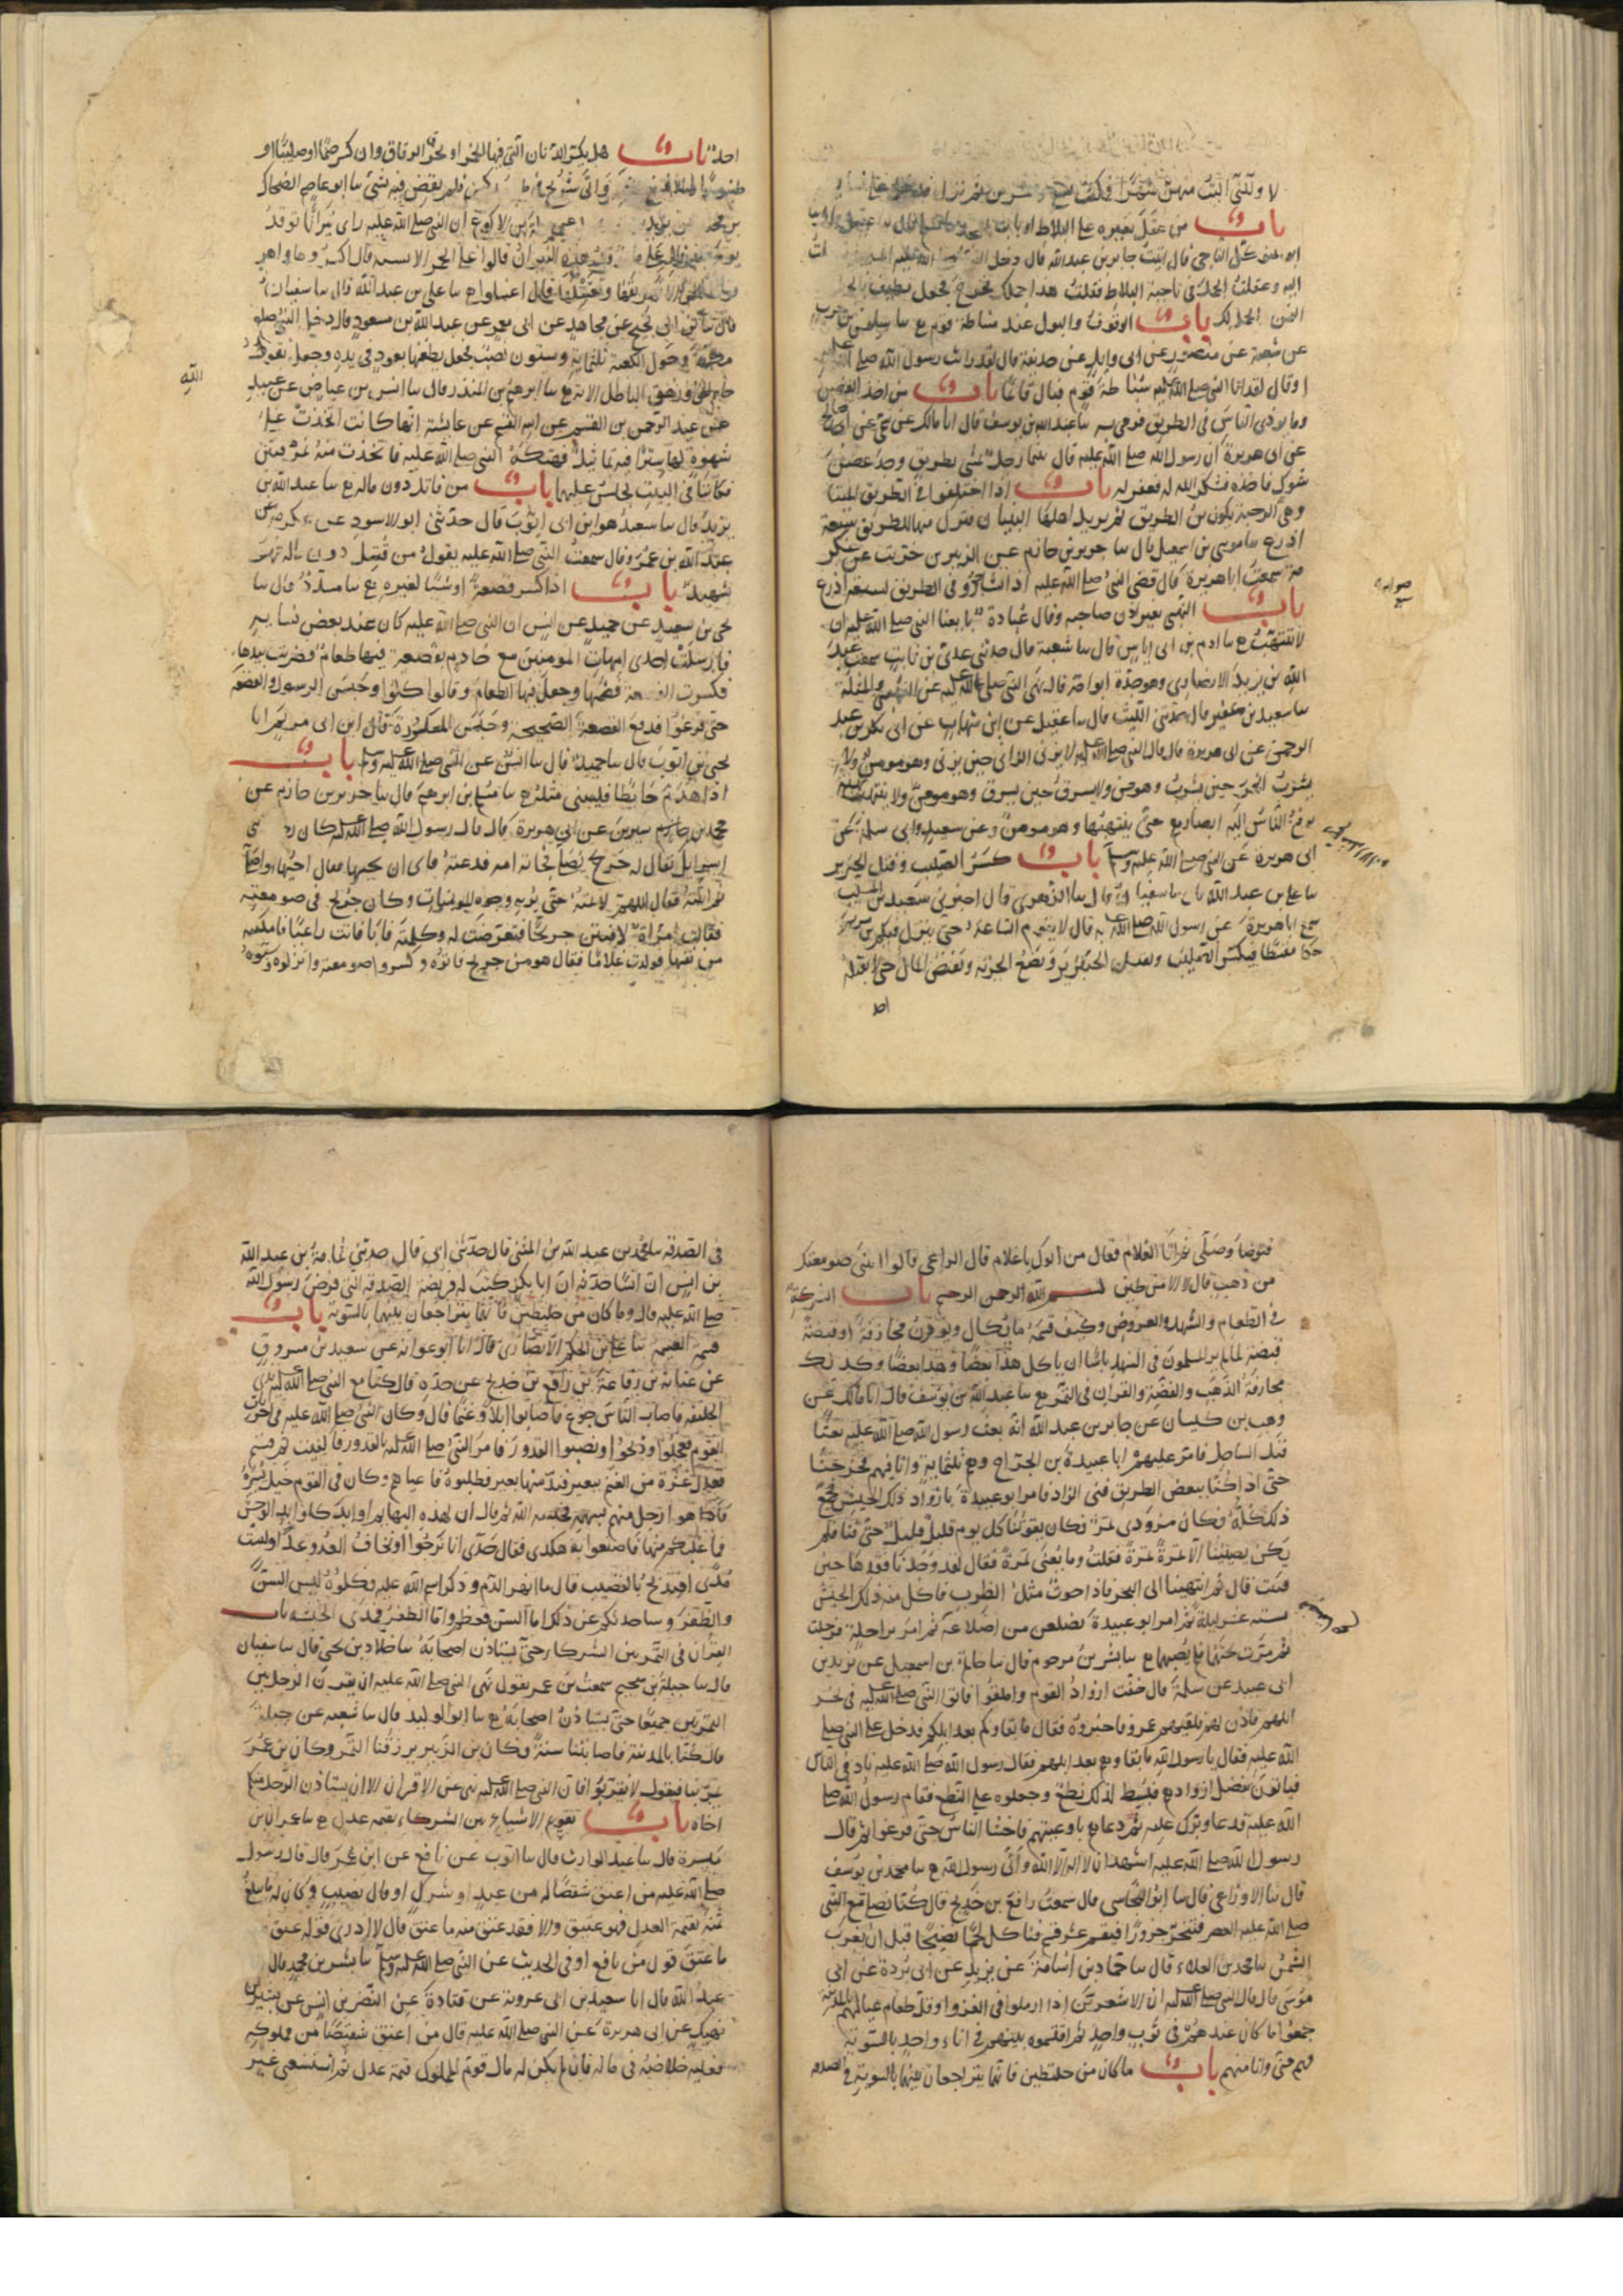 لا ولكني آليت منهن شهرا فمكث تسعا وعشرين ثم نزل فدخل على نسائه
باب من عقل بعيره على البلاط او باب المسجد
ابو المتوكل الناجي قال اتيت جابر بن عبد الله قال دخل النبي صلى الله عليه المسجد فدخلت
اليه وعقلت الجمل في ناحية البلاط فقلت هذا جملك فخرج فجعل يطيف بالجمل
الثمن والجمل لك باب الوقوف والبول عند سباطة قوم ع سا سليمن بن حرب
عن شعبة عن منصور عن ابي وايل عن حذيفة قال لقد رايت رسول الله صلى الله عليه
او قال لقد اتا النبي صلى الله عليه سباطة قوم فبال قائما باب من اخذ الغصن
وما يوذي الناس في الطريق فرمى به سا عبد الله بن يوسف قال انا مالك عن سمي عن ابي صالح
عن ابي هريرة ان رسول الله صلى الله عليه قال بينما رجل يمشي بطريق وجد غصن
شوك فاخذه فشكر الله له فغفر له باب اذا اختلفوا في الطريق الميتا
وهي الرحبة تكون بين الطريق ثم يريد اهلها البنيان فترك منها للطريق سبعة
اذرع سا موسى بن اسمعيل قال سا جرير بن حازم عن الزبير بن خريت عن عكر
مة سمعت ابا هريرة قال قضى النبي صلى الله عليه اذا تشاجروا في الطريق بسبعة اذرع
باب النهبى بغير اذن صاحبه وقال عبادة بايعنا النبي صلى الله عليه ان
لا ننتهب ع سا ادم بن ابي اياس قال سا شعبة قال حدثني عدي بن ثابت سمعت عبد
الله بن يزيد الانصاري وهو جده ابو امه قال نهى النبي صلى الله عليه عن النهبى والمثلة
سا سعيد بن عفير قال حدثني الليث قال سا عقيل عن ابن شهاب عن ابي بكر بن عبد
الرحمن عن ابي هريرة قال قال النبي صلى الله عليه لا يزني الزاني حين يزني وهو مومن ولا
يشرب الخمر حين يشرب وهو مومن ولا يسرق حين يسرق وهو مومن ولا ينتهب نهبة
يرفع الناس اليه ابصارهم حتى ينتهبها وهو مومن وعن سعيد وابي سلمة عن
ابي هريرة عن النبي صلى الله عليه وسلم باب كسر الصليب وقتل الخنزير
سا علي بن عبد الله قال سا سفيان قال سا الزهري قال اخبرني سعيد بن المسيب
سمع ابا هريرة عن رسول الله صلى الله عليه قال لا تقوم الساعة حتى ينزل فيكم بن مريم
حكما مقسطا فيكسر الصليب ويقتل الخنزير ويضع الجزية ويفيض المال حتى لا يقبله
احد
احد باب هل يكسر الدنان التي فيها الخمر او تخرق الزقاق وان كسر صنما او صليبا او
طنبورا واتي شريح في طنبور كسر فلم يقض فيه بشئ سا ابو عاصم الضحاك
بن مخلد عن يزيد عن سلمة بن الاكوع ان النبي صلى الله عليه راى نيرانا توقد
يوم خيبر قال على ما توقد هذه النيران قالوا على الحمر الانسية قال اكسروها واهر
قوها قالوا الا نهريقها ونغسلها قال اغسلوا ع سا علي بن عبد الله قال سا سفيان
قال سا بن ابي نجيح عن مجاهد عن ابي معمر عن عبد الله بن مسعود قال دخل النبي صلى الله عليه
مكة وحول الكعبة ثلثماية وستون نصبا فجعل يطعنها بعود في يده وجعل يقول
جاء الحق وزهق الباطل الاية ع سا ابرهيم بن المنذر قال سا انس بن عياض عن عبيد
الله
عن عبد الرحمن بن القسم عن ابيه القسم عن عائشة انها كانت اتخذت على
سهوة لها سترا فيه تماثيل فهتكه النبي صلى الله عليه فاتخذت منه نمرقتين
فكانتا في البيت يجلس عليهما باب من قاتل دون ماله ع سا عبد الله بن
يزيد قال سا سعيد هو ابن ابي ايوب قال حدثني ابو الاسود عن عكرمة عن
عبد الله بن عمرو قال سمعت النبي صلى الله عليه يقول من قتل دون ماله فهو
شهيد باب اذا كسر قصعة او شيئا لغيره ع سا مسدد قال سا
يحيى بن سعيد عن حميد عن انس ان النبي صلى الله عليه كان عند بعض نسايه
فارسلت احدى امهات المومنين مع خادم بقصعة فيها طعام فضربت بيدها
فكسرت القصعة فضمها وجعل فيها الطعام وقالوا كلوا وحبس الرسول والقصعة
حتى فرغوا فدفع القصعة الصحيحة وحبس المكسورة قال ابن ابي مريم انا
يحيى بن ايوب قال سا حميد قال سا انس عن النبي صلى الله عليه وسلم باب
اذا هدم حائطا فليبني مثله ع سا مسلم بن ابرهيم قال سا جرير بن حازم عن
محمد بن سيرين عن ابي هريرة قال قال رسول الله صلى الله عليه كان رجل في بني
اسرايل يقال له جريج يصلي فجاءته امه فدعته فابى ان يجيبها فقال اجيبها او اصلي
ثم اتته فقال اللهم لا تمته حتى تريه وجوه المومسات وكان جريج في صومعته
فقالت امراة لافتنن جريجا فتعرضت له وكلمته فابا فاتت راعيا فامكنته
من نفسها فولدت غلاما فقال هو من جريج فاتوه وكسروا صومعته وانزلوه وسبوه
فتوضا وصلى ثم اتا الغلام فقال من ابوك يا غلام قال الراعي قالوا ابني صومعتك
من ذهب قال لا الا من طين بسم الله الرحمن الرحيم باب الشركة
في الطعام والنهد والعروض وكيف قسمة ما يكال ويوزن مجازفة او قبضة
قبضة لما لم ير المسلمون في النهد باسا ان ياكل هذا بعضا وهذا بعضا وكذلك
مجازفة الذهب والفضة والقران في التمر ع سا عبد الله بن يوسف قال انا مالك عن
وهب بن كيسان عن جابر بن عبد الله انه بعث رسول الله صلى الله عليه بعثا
قبل الساحل فامر عليهم ابا عبيدة بن الجراح وهم ثلثماية وانا فيهم فخرجنا
حتى اذا كنا ببعض الطريق فني الزاد فامر ابو عبيدة بازواد ذلك الجيش فجمع
ذلك كله فكان مزودي تمر فكان يقوتنا كل يوم قليل قليل حتى فنا فلم
يكن يصيبنا الا تمرة تمرة فقلت وما يغني تمرة فقال لقد وجدنا فقدها حين
فنيت قال ثم انتهينا الى البحر فاذا حوت مثل الظرب فاكل منه ذلك الجيش
ستة عشر ليلة ثم امر ابو عبيدة بضلعين من اضلاعه ثم امر براحلة فرحلت
ثم مرت تحتهما فلم تصبهما ع سا بشر بن مرحوم قال سا حاتم بن اسمعيل عن يزيد بن
ابي عبيد عن سلمة قال خفت ازواد القوم واملقوا فاتوا النبي صلى الله عليه في نحر
ابلهم فاذن لهم فلقيهم عمر فاخبروه فقال ما بقاوكم بعد ابلكم فدخل على النبي صلى
الله عليه فقال يا رسول الله ما بقاوهم بعد ابلهم فقال رسول الله صلى الله عليه ناد في الناس
فياتون بفضل ازوادهم فبسط لذلك نطع وجعلوه على النطع فقام رسول الله صلى
الله عليه فدعا وبرك عليه ثم دعاهم باوعيتهم فاحتثا الناس حتى فرغوا ثم قال
رسول الله صلى الله عليه اشهد ان لا اله الا الله واني رسول الله ع سا محمد بن يوسف
قال سا الاوزاعي قال سا ابو النجاشي قال سمعت رافع بن خديج قال كنا نصلي مع النبي
صلى الله عليه العصر فننحر جزورا فيقسم عشر قسم فناكل لحما نضيجا قبل ان تغرب
الشمس سا محمد بن العلاء قال سا حماد بن اسامة عن بريد عن ابي بردة عن ابي
موسى قال قال النبي صلى الله عليه ان الاشعريين اذا ارملوا في الغزو او قل طعام عيالهم بالمدينة
جمعوا ما كان عندهم في ثوب واحد ثم اقتسموه بينهم في اناء واحد بالسوية
فهم مني وانا منهم باب ما كان من خليطين فانهما يتراجعان بينهما بالسوية في الصدقة
في الصدقة سا محمد بن عبد الله بن المثنى قال حدثني ابي قال حدثني ثمامة بن عبد الله
بن انس ان انسا حدثه ان ابا بكر كتب له فريضة الصدقة التي فرض رسول الله
صلى الله عليه قال وما كان من خليطين فانهما يتراجعان بينهما بالسوية باب
قسمة الغنم سا علي بن الحكم الانصاري قال انا ابو عوانة عن سعيد بن مسروق
عن عباية بن رفاعة بن رافع بن خديج عن جده قال كنا مع النبي صلى الله عليه بذي
الحليفة فاصاب الناس جوع فاصابوا ابلا وغنما قال وكان النبي صلى الله عليه في اخريات
القوم فعجلوا وذبحوا ونصبوا القدور فامر النبي صلى الله عليه بالقدور فاكفيت ثم قسم
فعدل عشرة من الغنم ببعير فند منها بعير فطلبوه فاعياهم وكان في القوم خيل يسيرة
فاهوا رجل منهم بسهم فحبسه الله ثم قال ان لهذه البهايم اوابد كاوابد الوحش
فما غلبكم منها فاصنعوا به هكذى فقال جدي انا نرجوا او نخاف العدو غدا وليست
مدى افنذبح بالقصب قال ما انهر الدم وذكر اسم الله عليه فكلوه ليس السن
والظفر وساحدثكم عن ذلك اما السن فعظم واما الظفر فمدى الحبشة باب
القران في التمر بين الشركاء حتى يستاذن اصحابه سا خلاد بن يحيى قال سا سفيان
قال سا جبلة بن سحيم سمعت بن عمر يقول نهى النبي صلى الله عليه ان يقرن الرجل بين
التمرتين جميعا حتى يستاذن اصحابه ع سا ابو الوليد قال سا شعبة عن جبلة
قال كنا بالمدينة فاصابتنا سنة فكان بن الزبير يرزقنا التمر وكان بن عمر
يمر بنا فيقول لا تقرنوا فان النبي صلى الله عليه نهى عن الاقران الا ان يستاذن الرجل منكم
اخاه باب تقويم الاشياء بين الشركاء بقيمة عدل ع سا عمران بن
ميسرة قال سا عبد الوارث قال سا ايوب عن نافع عن ابن عمر قال قال رسول
صلى الله عليه من اعتق شقصا له من عبد او شرك او قال نصيب وكان له ما يبلغ
ثمنه بقيمة العدل فهو عتيق والا فقد عتق منه ما عتق قال لا ادري قوله عتق
ما عتق قول من نافع او في الحديث عن النبي صلى الله عليه وسلم سا بشر بن محمد قال
عبد الله قال انا سعيد بن ابي عروبة عن قتادة عن النضر بن انس عن بشير بن
نهيك عن ابي هريرة عن النبي صلى الله عليه قال من اعتق شقيصا من مملوكه
فعليه خلاصه في ماله فان لم يكن له مال قوم المملوك قيمة عدل ثم استسعي غير